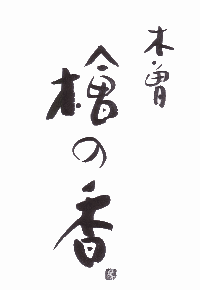 木曽
檜の香